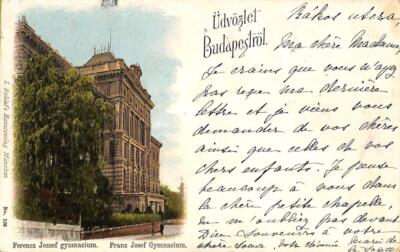 Üdvözlet
Budapestről.
Rákos utcza,
Ma chère Madame,
Je crains que vous n'ayez
pas reçu ma dernière
lettre et je viens vous
demander de vos chères
ainsi que celles de vos
chers enfants. Je pense
beaucoup à vous dans
la chère petite chapelle,
ne m'oubliez pas devant
Dieu. Souvenirs à votre
chère Soeur. Votre
Marie de
L. Schlöl's Kunstverlag, München
No. 126
Ferencz József gymnazium. Franz Josef Gymnasium.